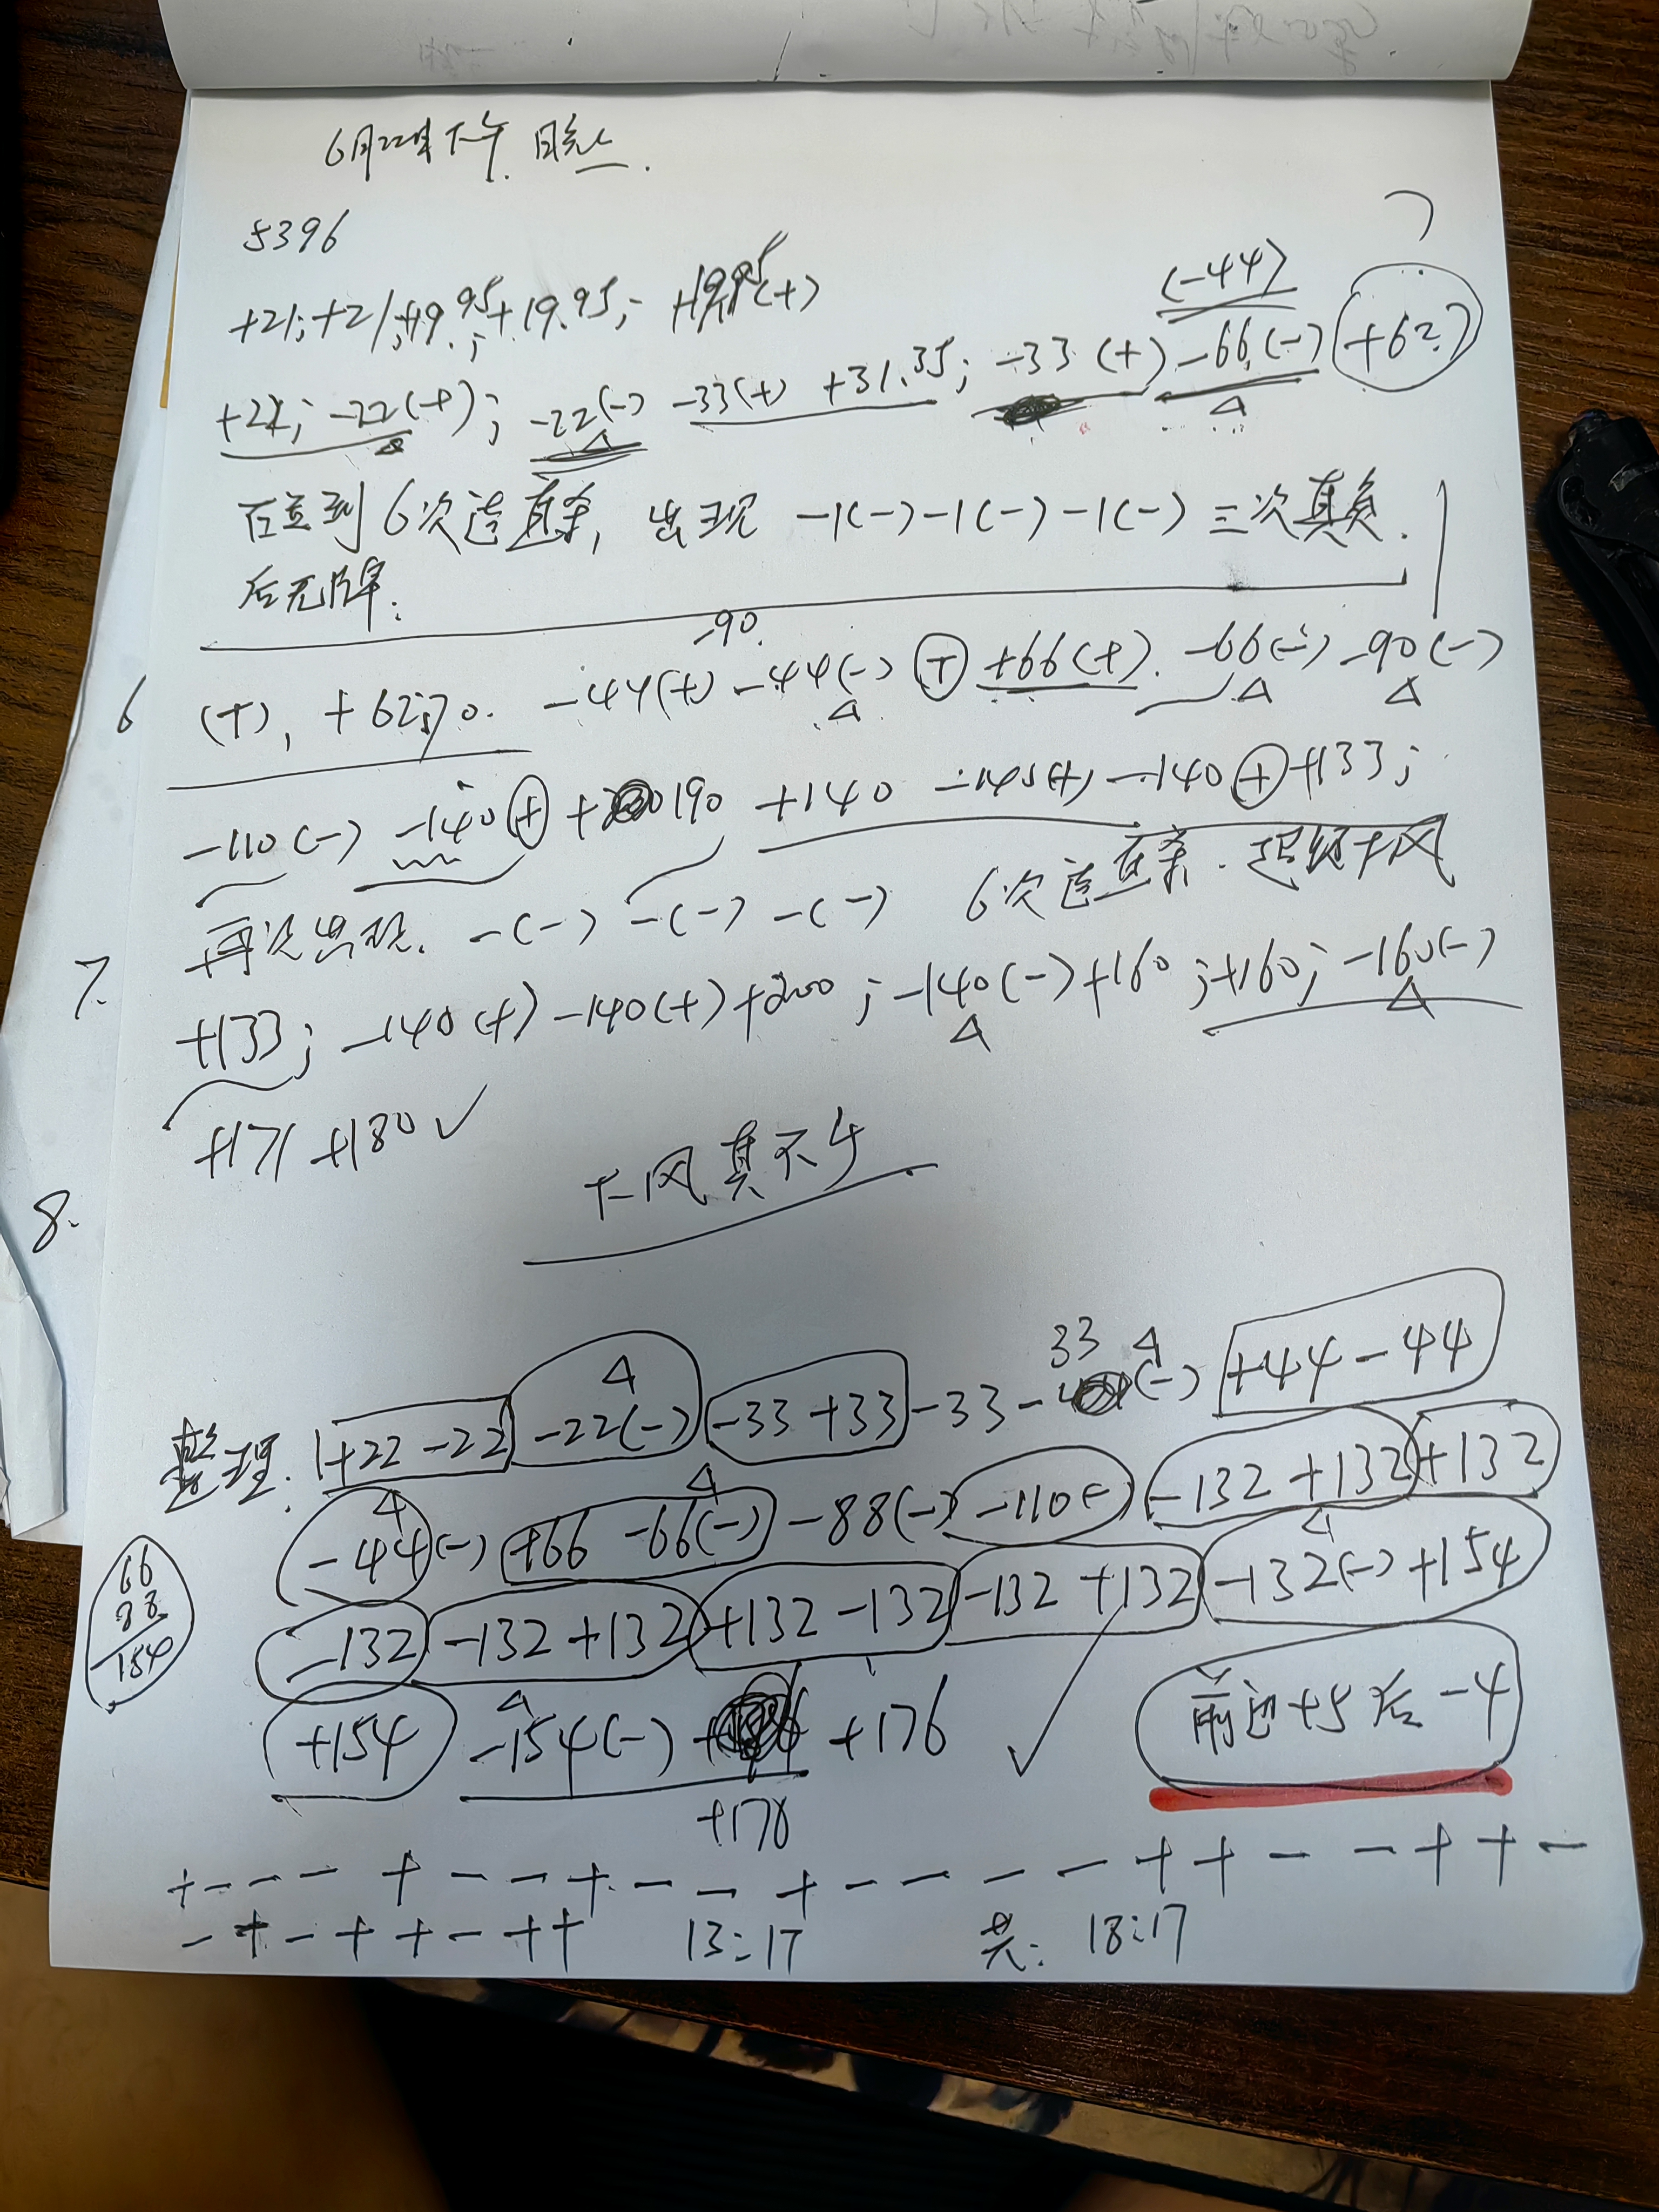 6月22日下午.
5396
+21; +21; +19.95; +19.95; - +19.95(+)
(-44)
+22; -22(+); -22(-) -33(+) +31.35; -33(+) -66(-) +62?
6次连 出现 -1(-) -1(-) -1(-) 三次真负.
后无牌.
-90.
6
(+), +62.70. -44(+) -44(-) + +66(+). -66(-) -90(-)
-110(-) -140 + +190 +140 -140(+) -140 + +133;
再次出现. -(-) -(-) -(-) 6次连 超级下风
7.
+133; -140(+) -140(+) +200; -140(-) +160; +160; -160(-)
+171 +180 ✓
下风真不少
8.
33 △
整理. +22 -22 -22(-) -33 +33 -33 - (-) +44 -44
-44(-) +66 -66(-) -88(-) -110(-) -132 +132 +132
66
88
154
-132 -132 +132 +132 -132 -132 +132 -132(-) +154
+154 -154(-) +176 ✓
前边+5后-4
+176
+ - - - + - - + - - + - - - - + + - - + + -
- + - + + - + + 13:17 共: 18:17